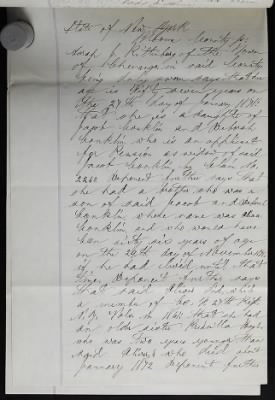 State of New York
County
Sarah E of the Town
of Chenango in said County
being duly sworn says that her
age is fifty seven years on
the 27th day of January 1876
that she is a daughter of
Jacob Conklin and Deborah
Conklin who is an applicant
for Pension as widow of said
Jacob Conklin by Claim No
2260 Deponent further says that
she had a brother who was a
son of said Jacob and Deborah
Conklin whose name was
Conklin and who would have
been sixty six years of age
on the 29th day of November
if he had lived until that
time Deponent further says
that said died while
a member of Co. 27th Regt
N.Y. Vols in 186 that she had
an older sister Priscilla
who was two years younger than
said who died about
January 1872 Deponent further